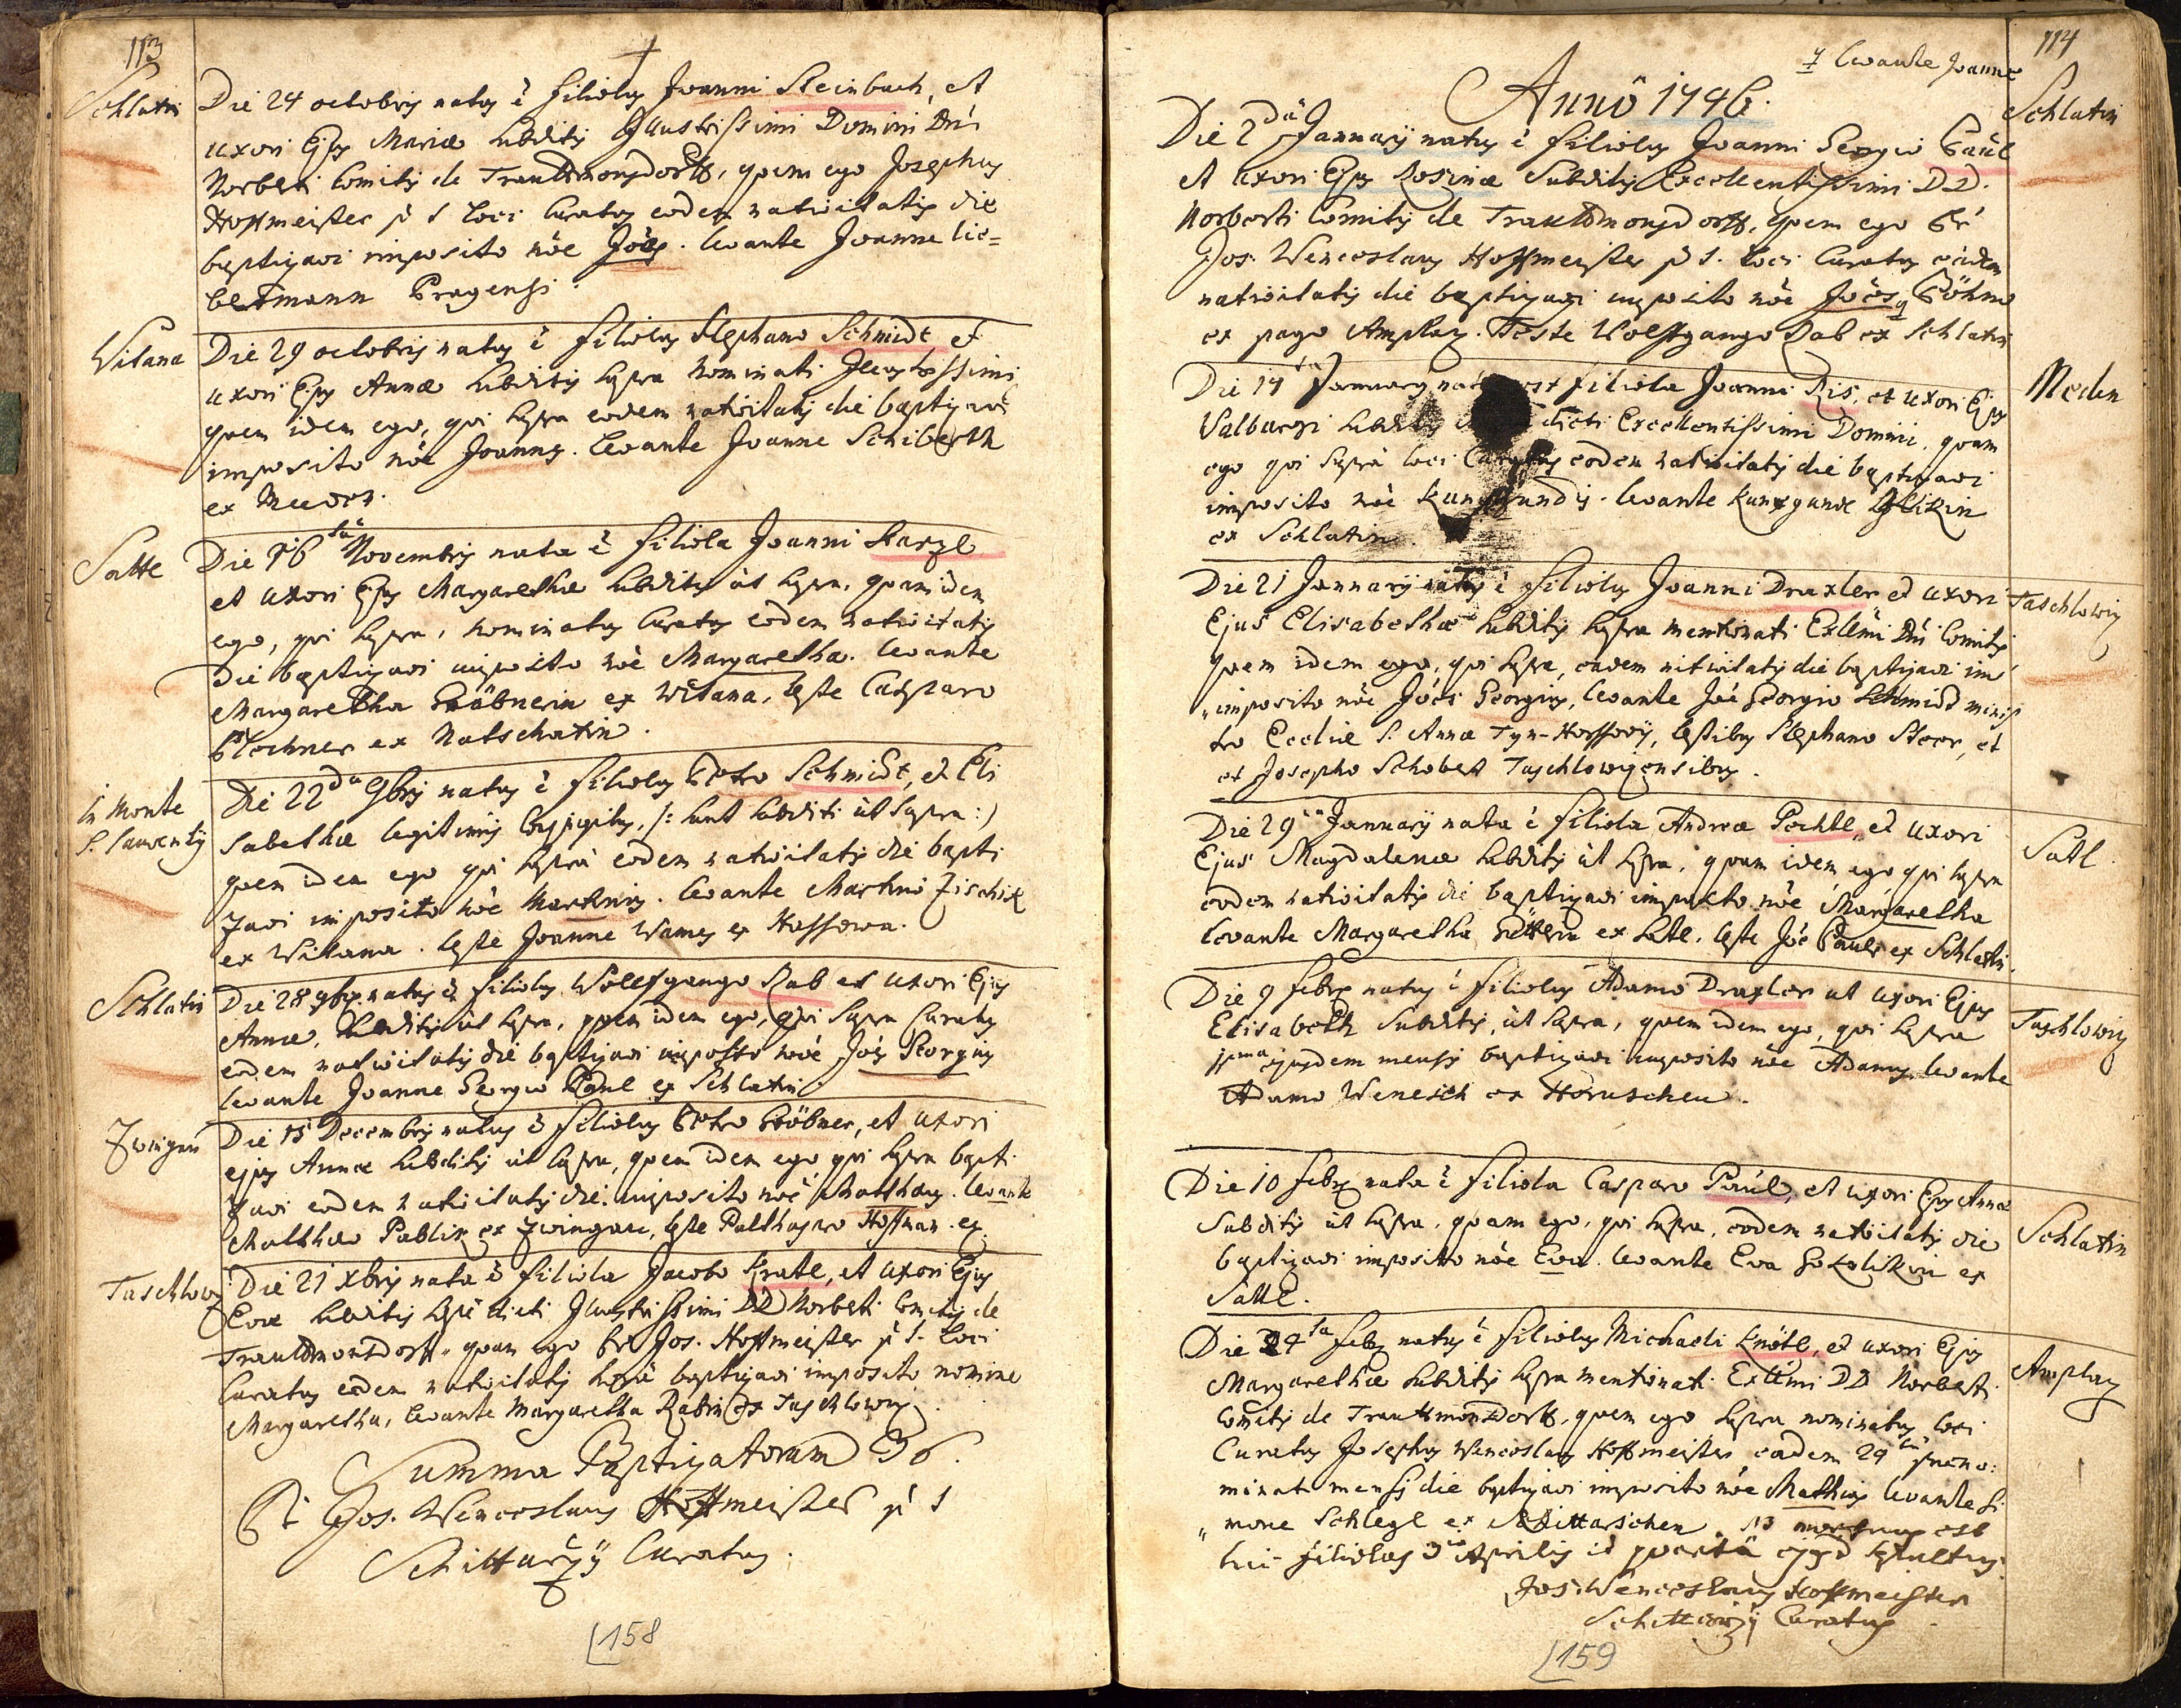 113
†
Schlatin
Die 24 octobris natus ē filiolus Joanni Steinbach, et
uxori Ejus Mariæ subditis Illustrissimi Domini Dni
Norberti Comitis de Trauttmonsdorff, quem ego Josephus
Hoffmeister p t loci Curatus eodem nativitatis die
baptizavi imposito nōe Joēs. levante Joanne lie=
bertmann Pragensi.
Witana
Die 29 octobris natus ē filiolus Stephano Schmidt et
uxori Ejus Annæ subditis supra nominati Illustrissimi
quem idem ego, qui supra eodem nativitatis die baptizavi
imposito nōe Joannes. levante Joanne Schiberth
ex
Satte
Die 16ta Novembris nata ē filiola Joanni Starzl
et uxori Ejus Margarethæ subditis ut supra, quam idem
ego, qui supra, nominatus Curatus eodem nativitatis
die baptizavi imposito nōe Margaretha. levante
Margaretha Gröbnerin ex Witana, teste Casparo
Plochner ex Natschetin.
in Monte
S. Laurentij
Die 22da 9bris natus ē filiolus Petro Schmidt, et Eli
sabethæ legitimis conjugibus, /: sunt subditi ut supra :)
quem idem ego qui supra eodem nativitatis die bapti
zavi imposito nōe Martinus. levante Martino Zischik
ex Witana. teste Joanne Wames ex Hassowa.
Schlatin
Die 28 9bris natus ē filiolus Wolfgango Rab et uxori Ejus
Annæ, subditis ut supra, quem idem ego, qui supra Curatus
eodem nativitatis die baptizavi imposito nōe Joēs Georgius
levante Joanne Georgio Paul ex Schlatin.
Zwingau
Die 15 Decembris natus ē filiolus Petro Gröbner, et uxori
ejus Annæ subditis ut supra, quem idem ego qui supra bapti
zavi eodem nativitatis die imposito nōe Matthæus. levante
Matthæo Pablik ex Zwingau, teste Palthasaro Hoffman ex.
Taschlowitz
Die 21 xbris nata ē filiola Jacobo Kratl, et uxori Ejus
Evæ subditis supe dicti Illustrissimi DD Norberti Comitis de
Trauttmonsdorff, quam ego Pr Jos. Hoffmeister p t. loci
Curatus eodem nativitatis baptizavi imposito nomine
Margaretha, levante Margaretha Rabin ex Taschlowitz.
Summa Baptizatorum 36.
Pr Jos. Wenceslaus Hoffmeister p t
Schittarzij Curatus.
158
114
levante Joanne
Annô 1746.
Schlatin
Die 2dâ Januarij natus ē filiolus Joanni Georgio Paül
et uxori Ejus Rosinæ Subditis Excellentissimi D D.
Norberti Comitis de Trauttmonsdorff, quem ego Pr
Jos. Wenceslaus Hoffmeister p t. loci Curatus eadem
nativitatis die baptizavi imposito nōe Joēs, Böhm
ex pago Amplatz. Teste Wolffgango Rab ex Schlatin
Medn
Die 14ta Januarij nata est filiola Joanni Ris, et uxori Ejus
Valburgi subditis dicti Excellentissimi Domini, quam
ego qui supra loci Curatus eodem nativitatis die baptizavi
imposito nōe Kunigundis. levante Kunegunde
ex Schlatin.
Taschlowitz
Die 21 Januarij natus ē filiolus Joanni Draxler et uxori
Ejus Elisabethæ subditis supra mentionati Exllmi Dni Comitis
quem idem ego, qui supra, eadem nativitatis die baptizavi im
imposito nōe Joēs Georgius, levante Joē Georgio Schmidt minis
tro Eccliæ S. Annæ Tyn-Horssovij, testibus Stephano Steer, et
et Josepho Schobert Taschlowizensibus.
Satl.
Die 29na Januarij nata ē filiola Andreæ Pechtl, et uxori
Ejus Magdalenæ subditis ut supra, quam idem ego qui supra
eodem nativitatis die baptizavi imposito nōe Margaretha
levante Margaretha ex Satl. teste Joē Paul ex Schlatin.
Taschlowitz
Die 9 febris natus ē filiolus Adamo Draxler et uxori Ejus
Elisabeth subditis, ut supra, quem idem ego, qui supra
ejusdem mensis baptizavi imposito nōe Adamus. levante
Adamo Wenesch ex Horuschen.
Schlatin
Die 10 febris nata ē filiola Casparo Paül, et uxori Ejus Annæ
subditis ut supra, quam ego, qui supra, eodem nativitatis die
baptizavi imposito nōe Eva. levante Eva Sokolikin ex
Satte.
Amplatz
Die 24ta febris natus ē filiolus Michaeli Knötl, et uxori Ejus
Margarethæ subditis supra mentionati Exllmi DD Norberti
Comitis de Trauttmonsdorff, quem ego supra nominatus loci
Curatus Josephus Wenceslaus Hoffmeister eadem 24ta præno:
minati mensis die baptizavi imposito nōe Mathias levante Si
mone Schlegl ex Schittarschen. mortuus est
hic filiolus 3 Aprilis et quarta ejusd sepultus.
Jos. Wenceslaus Hoffmeister
Schittarzij Curatus
159